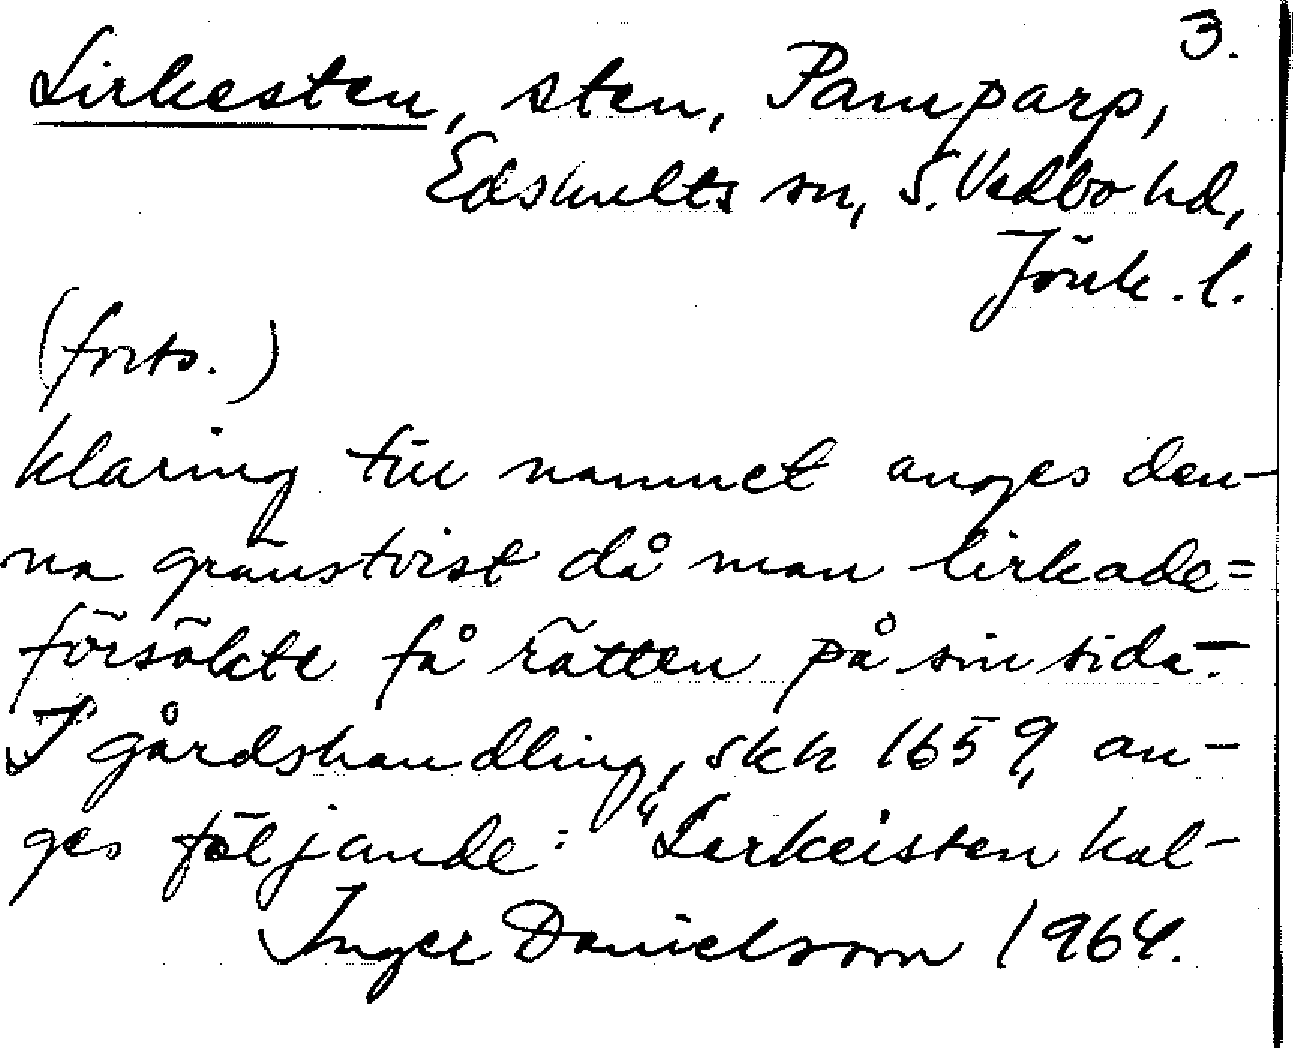 3.
Lirkesten, sten, Pamparp,
Edshults sn, S. Vedbo hd,
Jönk. l.
(forts.)
klaring till namnet anges den-
na gränstvist då man lirkade=
försökte få rätten på sin sida.-
I gårdshandling, skk 1659, an-
ges följande: "Lerkeisten kal-
Inger Danielsson 1964.